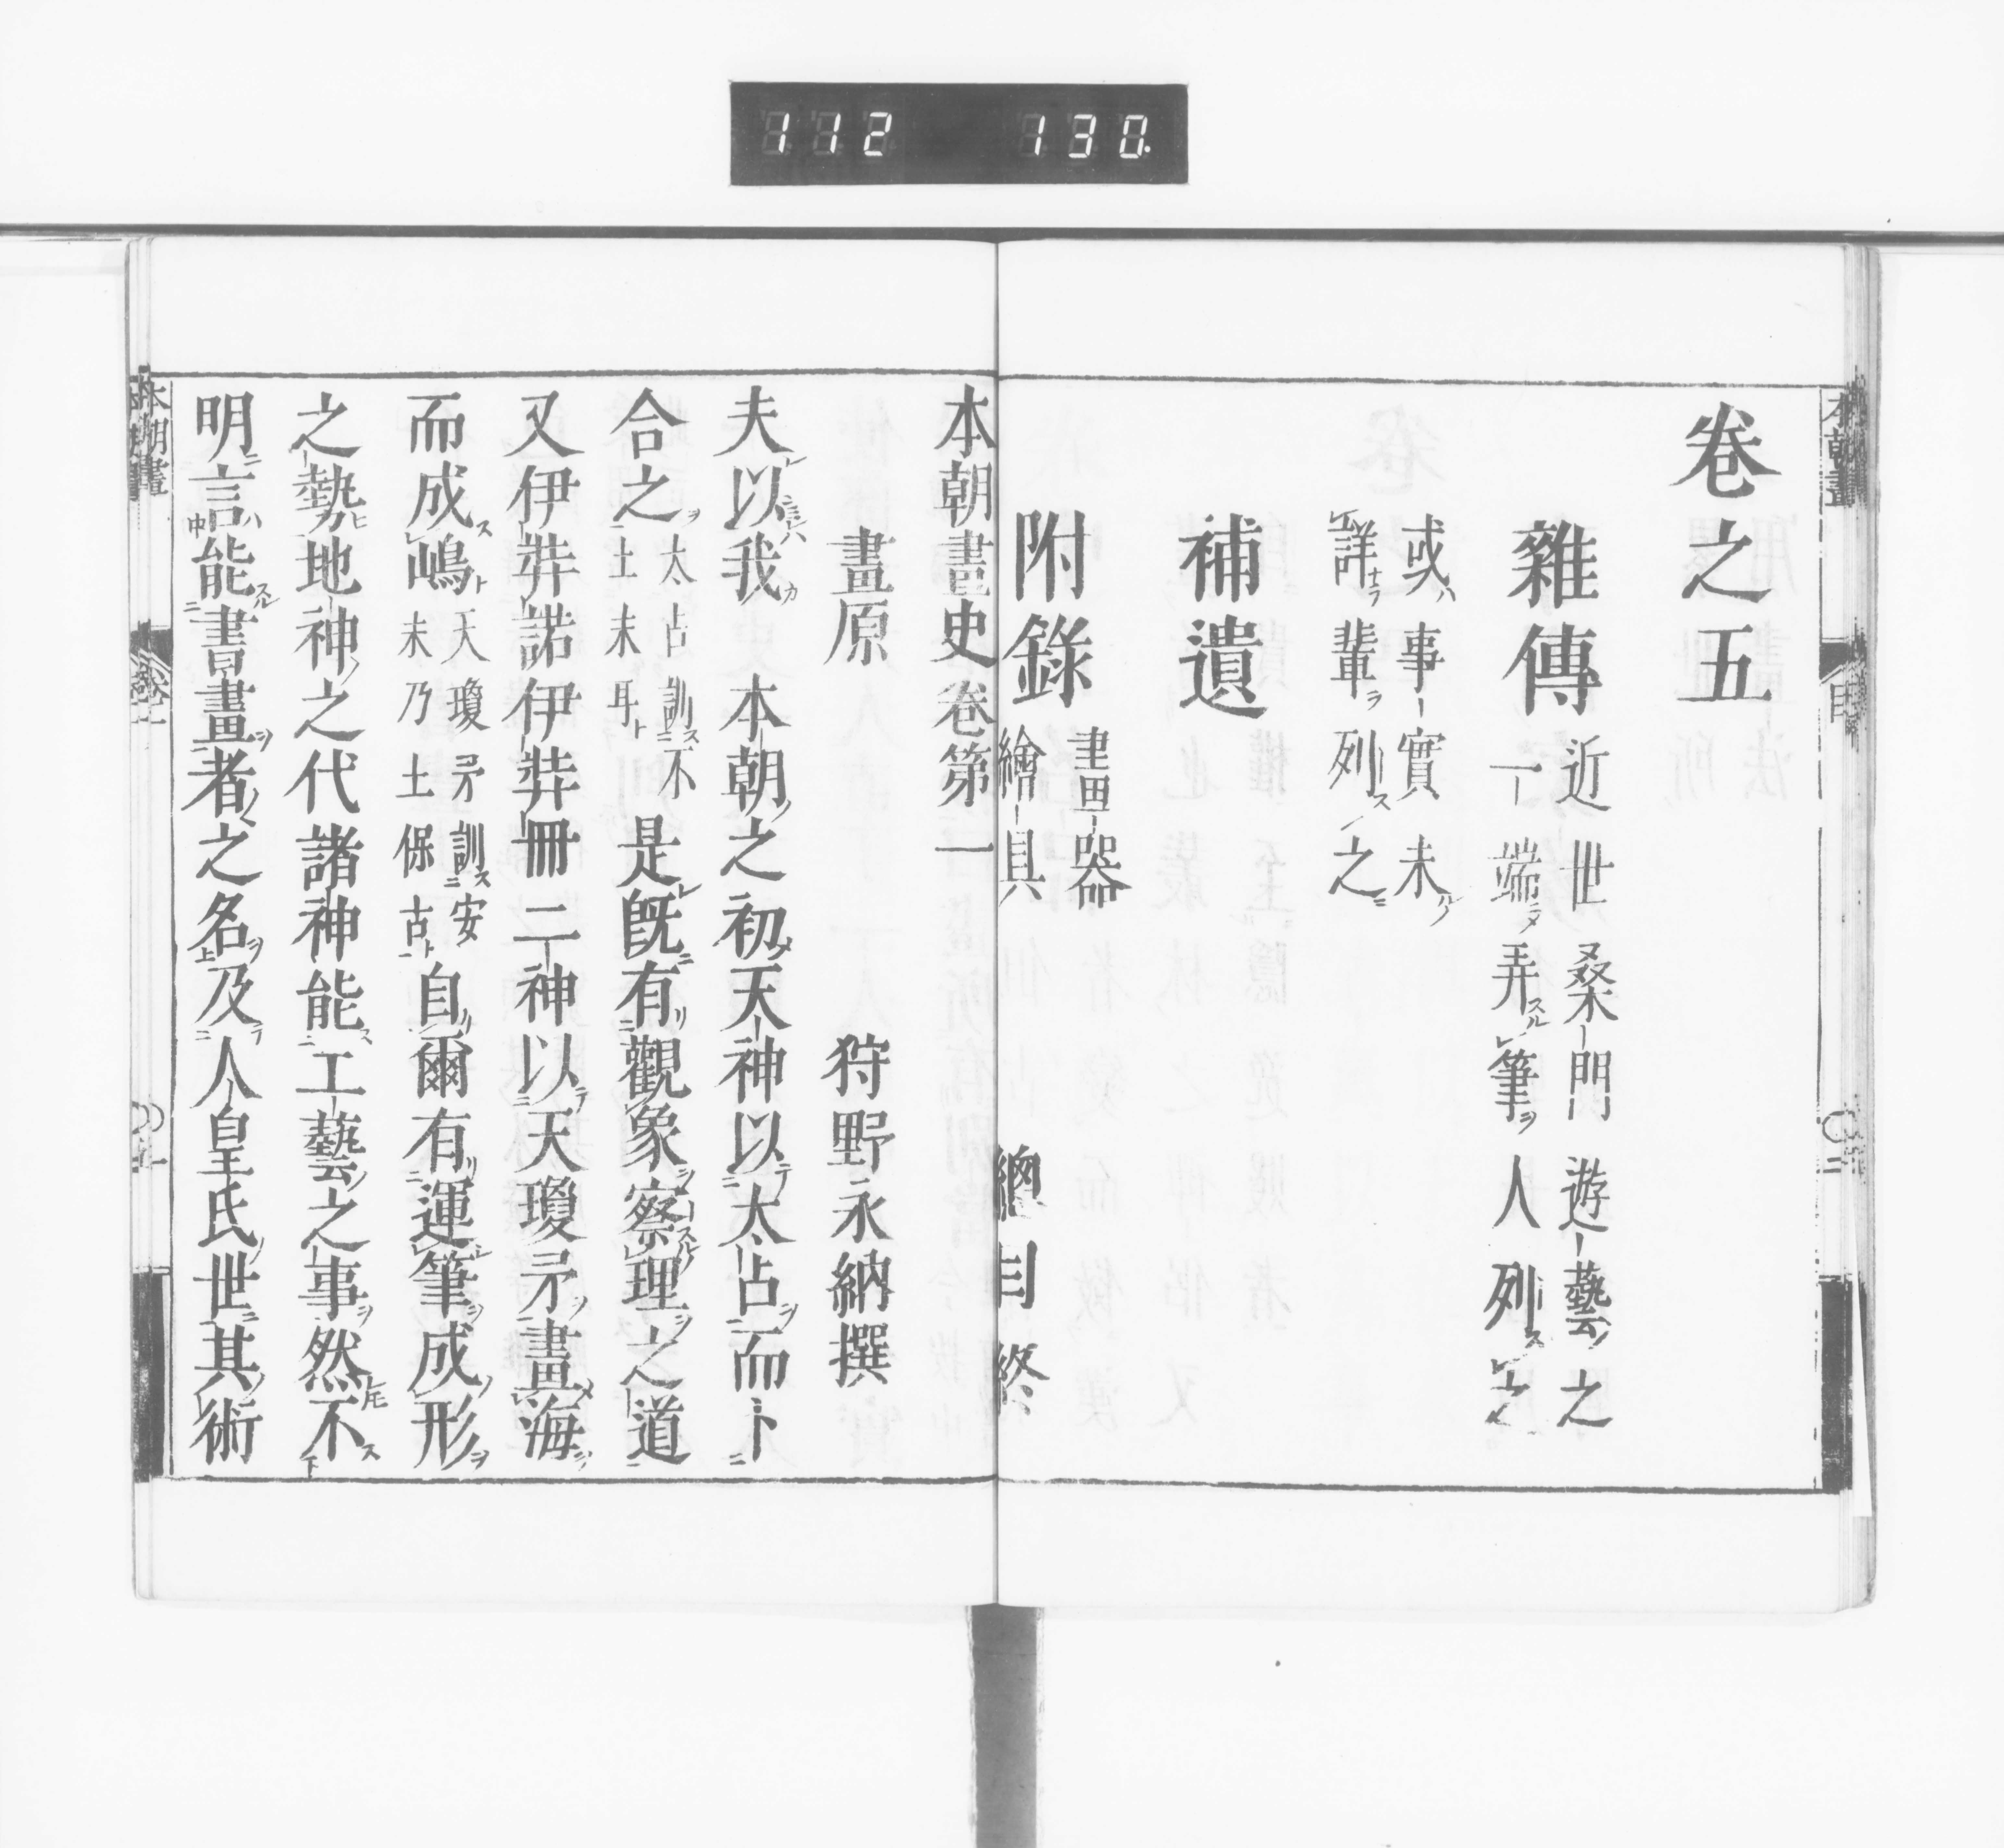 112 130
卷之五
雜傳 近世桑門遊藝之
一端弄筆人列之
或事實未
詳輩列之
補遺
附錄 畫器
繪具
總目終
本朝畫史卷第一
畫原
狩野永納撰
夫以我本朝之初天神以太占而卜
合之 太占訓不
土末耳 是既有觀象察理之道
又伊弉諾伊弉冊二神以天瓊矛畫海
而成嶋 天瓊矛訓安
末乃土保古 自爾有運筆成形
之勢地神之代諸神能工藝之事然不
明言能書畫者之名及人皇氏世其術